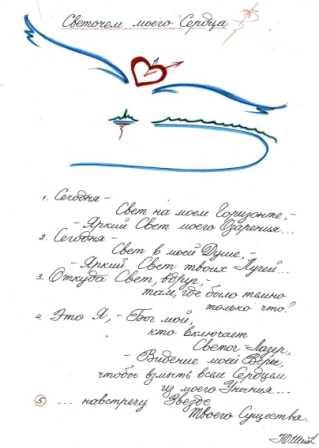 Светочем моего Сердца
1. Сегодня –
Свет на моем Горизонте, –
– Яркий Свет моего Озарения...
2. Сегодня –
Свет в моей Душе, –
– Яркий Свет твоих Лучей...
3. Откуда Свет, вдруг, –
там, где было темно
только что?
4. Это Я, – Бог мой,
кто включает
Светог Лазер,
– Видение моей Веры,
чтобы взмыть всем Сердцем
из моего Уныния...
5 ... навстречу Звезде
Твоего Существа.